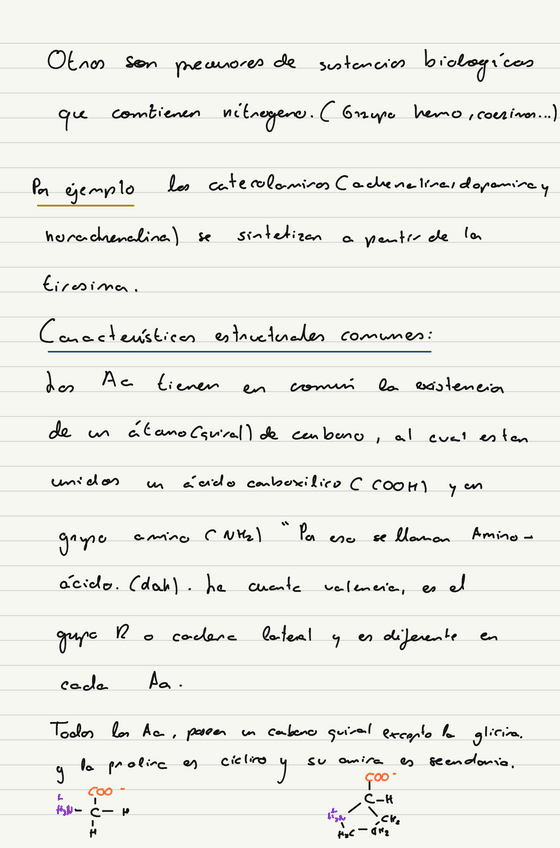 Otros son precursores de sustancias biologicas
que contienen nitrogeno. (Grupo hemo, coezimas...)
Por ejemplo las catecolaminas (adrenalina, dopamina y
noradrenalina) se sintetizan a partir de la
tirosina.
Características estructurales comunes:
Los Aa tienen en común la existencia
de un átomo (quiral) de carbono, al cual estan
unidos un ácido carboxilico (COOH) y un
grupo amino (NH2) " Por eso se llaman Amino-
ácido. (dah). La cuarta valencia, es el
grupo R o cadena lateral y es diferente en
cada Aa.
Todos los Aa, poseen un carbono quiral excepto la glicina.
y la prolina es cíclica y su amina es secundaria.
COO-
+
H3N - C - H
H
COO-
C - H
+
H2N
CH2
H2C - CH2